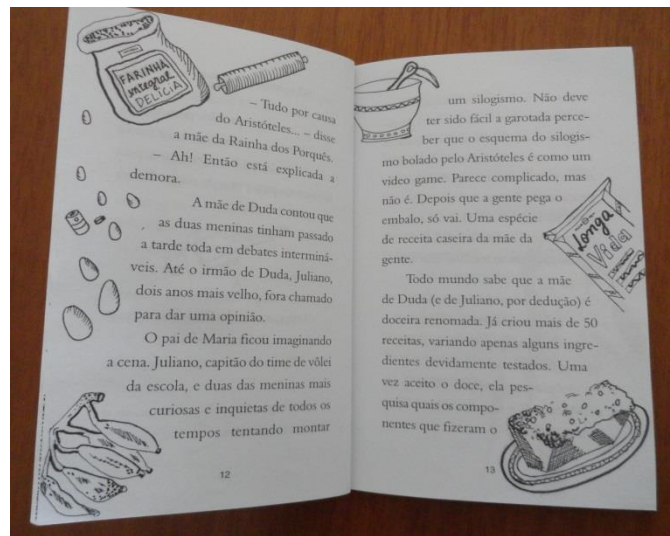 FARINHA
integral
DELÍCIA
– Tudo por causa
do Aristóteles... – disse
a mãe da Rainha dos Porquês.
– Ah! Então está explicada a
demora.
A mãe de Duda contou que
as duas meninas tinham passado
a tarde toda em debates intermina-
veis. Até o irmão de Duda, Juliano,
dois anos mais velho, fora chamado
para dar uma opinião.
O pai de Maria ficou imaginando
a cena. Juliano, capitão do time de vôlei
da escola, e duas das meninas mais
curiosas e inquietas de todos os
tempos tentando montar
12
um silogismo. Não deve
ter sido fácil a garotada perce-
ber que o esquema do silogis-
mo bolado pelo Aristóteles é como um
video game. Parece complicado, mas
não é. Depois que a gente pega o
embalo, só vai. Uma espécie
de receita caseira da mãe da
gente.
Longa
Vida
Todo mundo sabe que a mãe
de Duda (e de Juliano, por dedução) é
doceira renomada. Já criou mais de 50
receitas, variando apenas alguns ingre-
dientes devidamente testados. Uma
vez aceito o doce, ela pes-
quisa quais os compo-
nentes que fizeram o
13